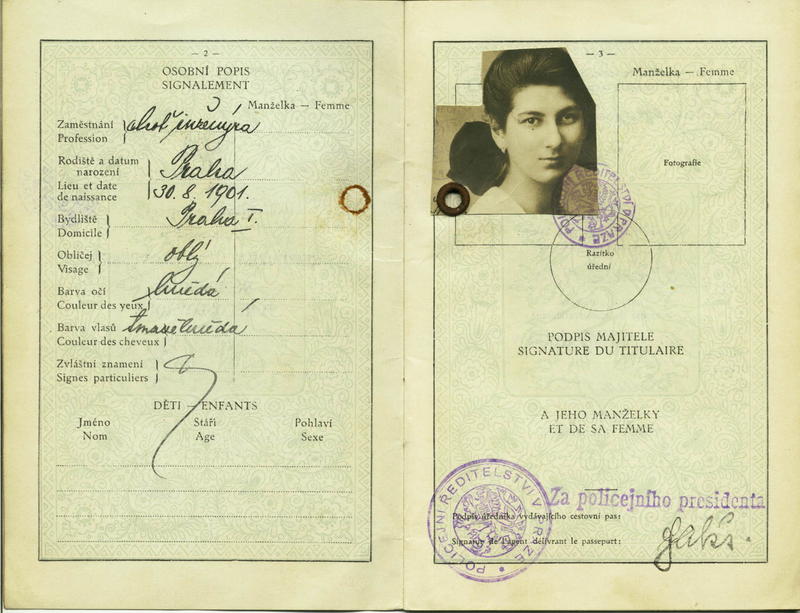 — 2 —
OSOBNÍ POPIS
SIGNALEMENT
Manželka — Femme
Zaměstnání
Profession
choť inženýra
Rodiště a datum
narození
Praha
Lieu et date
de naissance
30. 8. 1901.
Bydliště
Domicile
Praha I.
Obličej
Visage
oblý
Barva očí
Couleur des yeux
hnědá
Barva vlasů
Couleur des cheveux
tmavěhnědá
Zvláštní znamení
Signes particuliers
DĚTI — ENFANTS
Jméno Stáří Pohlaví
Nom Age Sexe
— 3 —
Manželka — Femme
Fotografie
POLICEJNÍ ŘEDITELSTVÍ V PRAZE
Razítko
úřední
PODPIS MAJITELE
SIGNATURE DU TITULAIRE
A JEHO MANŽELKY
ET DE SA FEMME
POLICEJNÍ ŘEDITELSTVÍ V PRAZE
Za policejního presidenta
Podpis úředníka vydávajícího cestovní pas:
Signature de l'agent délivrant le passeport: